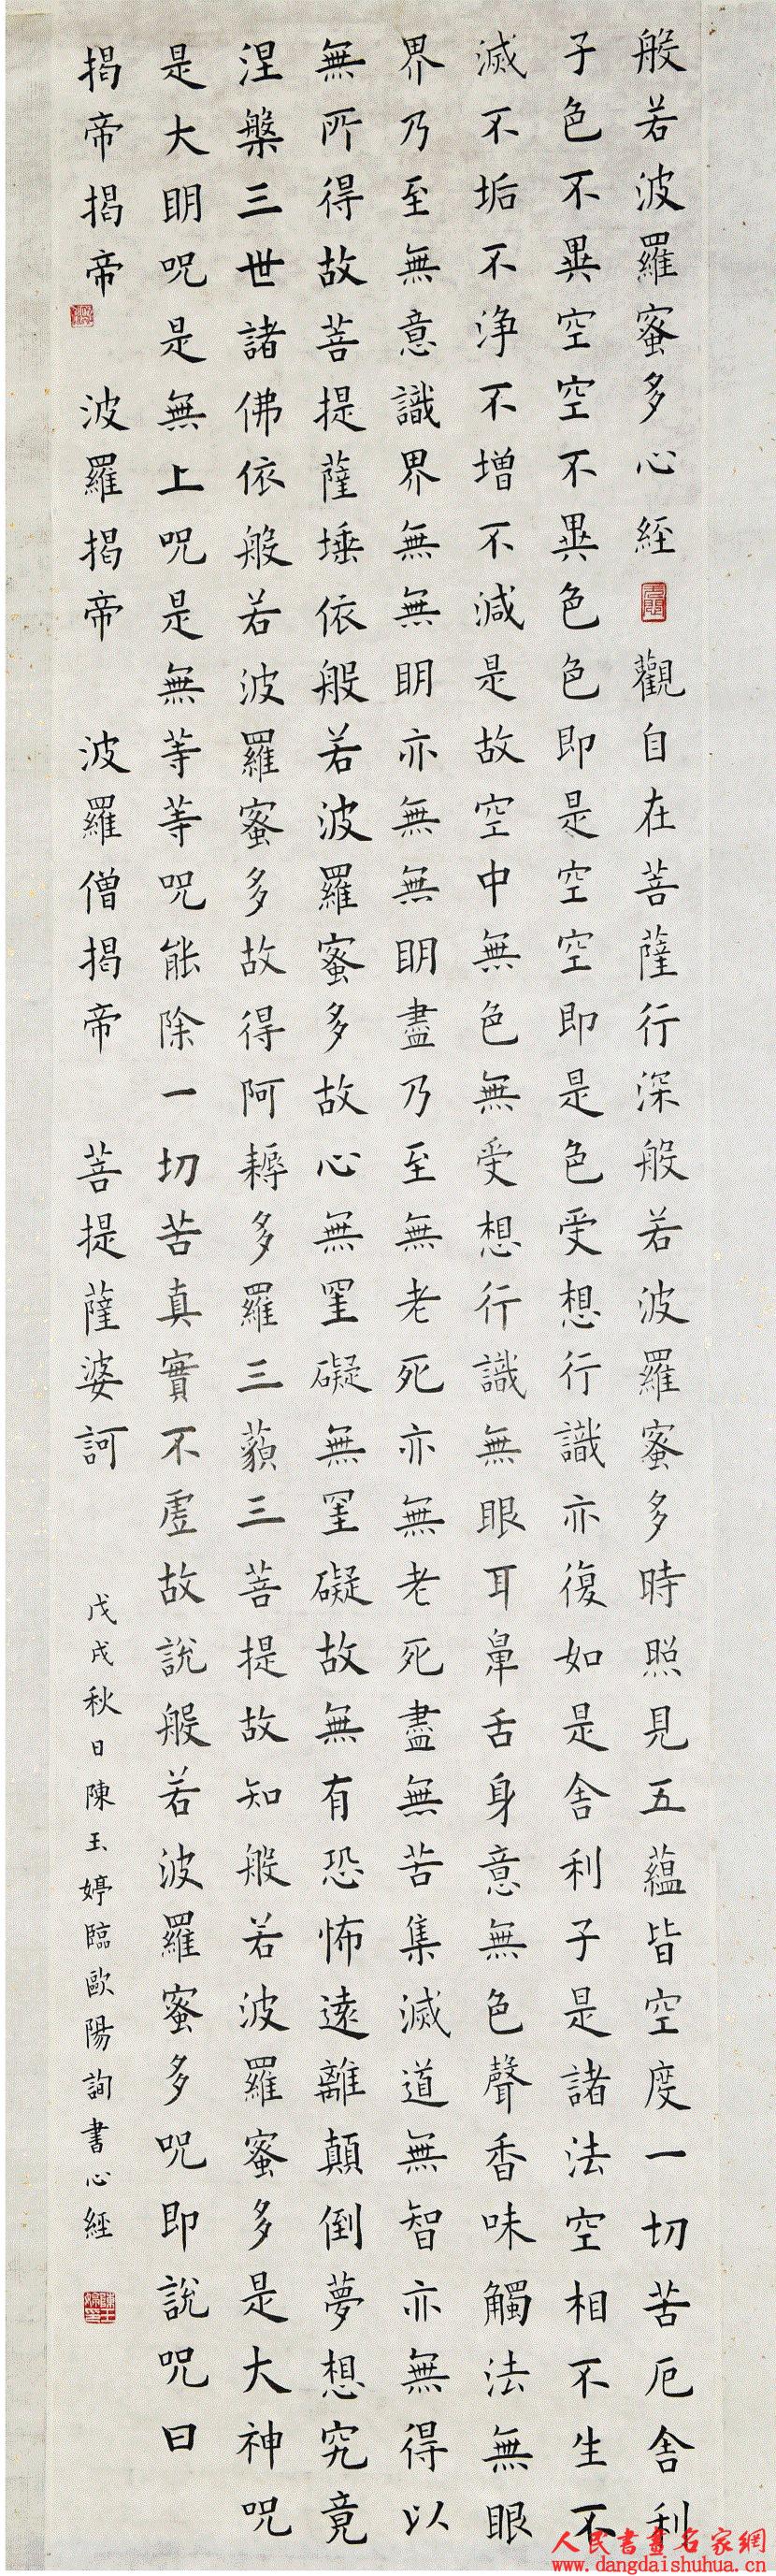 般若波羅蜜多心經 觀自在菩薩行深般若波羅蜜多時照見五蘊皆空度一切苦厄舍利
子色不異空空不異色色即是空空即是色受想行識亦復如是舍利子是諸法空相不生不
滅不垢不淨不增不減是故空中無色無受想行識無眼耳鼻舌身意無色聲香味觸法無眼
界乃至無意識界無無明亦無無明盡乃至無老死亦無老死盡無苦集滅道無智亦無得以
無所得故菩提薩埵依般若波羅蜜多故心無罣礙無罣礙故無有恐怖遠離顛倒夢想究竟
涅槃三世諸佛依般若波羅蜜多故得阿耨多羅三藐三菩提故知般若波羅蜜多是大神呪
是大明呪是無上呪是無等等呪能除一切苦真實不虛故說般若波羅蜜多呪即說呪曰
揭帝揭帝 波羅揭帝 波羅僧揭帝 菩提薩婆訶 戊戌秋日陳玉婷臨歐陽詢書心經
人民書畫名家網
www.dangdaishuhua.cn